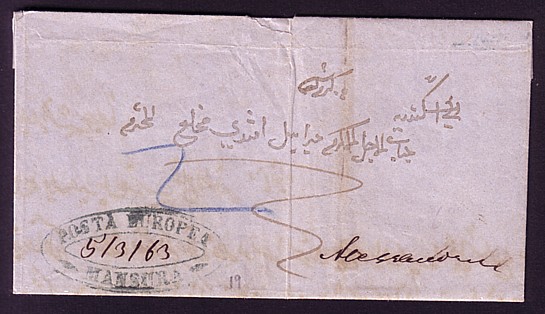 الى اسكندريه
جناب الاجل المكرم جبرايل افندي مخلع المحترم
POSTA EUROPEA
5/3/63
MANSURA
Alessandria
19